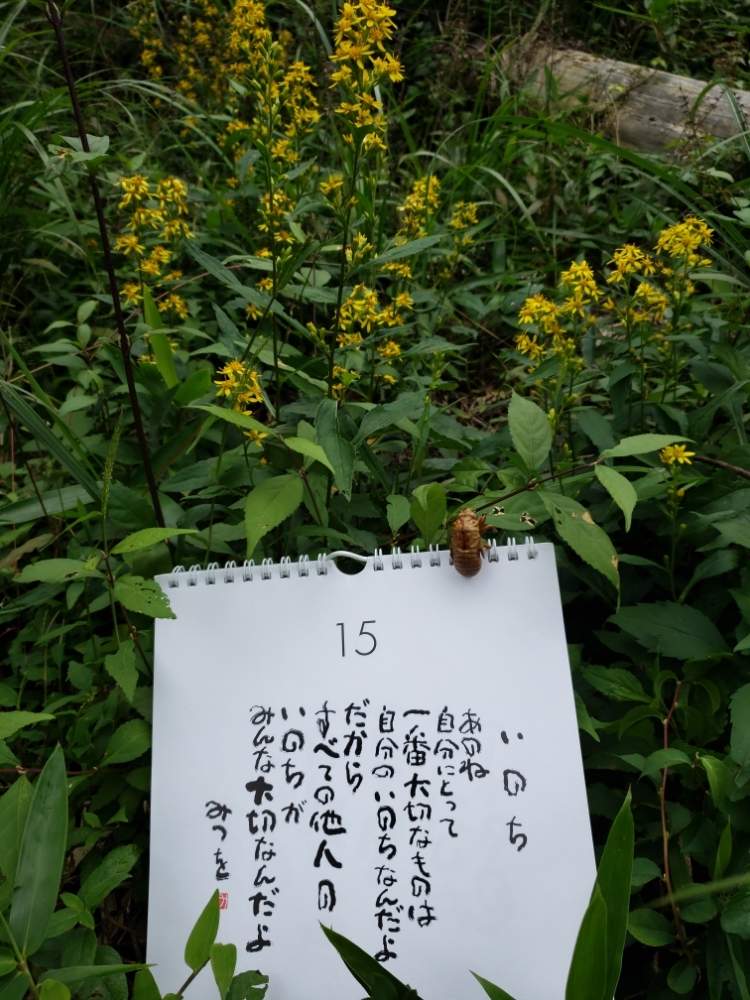 15
いのち
あのね
自分にとって
一番大切なものは
自分のいのちなんだよ
だから
すべての他人の
いのちが
みんな大切なんだよ
みつを